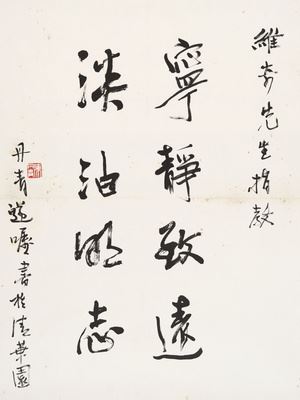 維先生指教
寧靜致遠
淡泊明志
丹青遵囑書於清華園